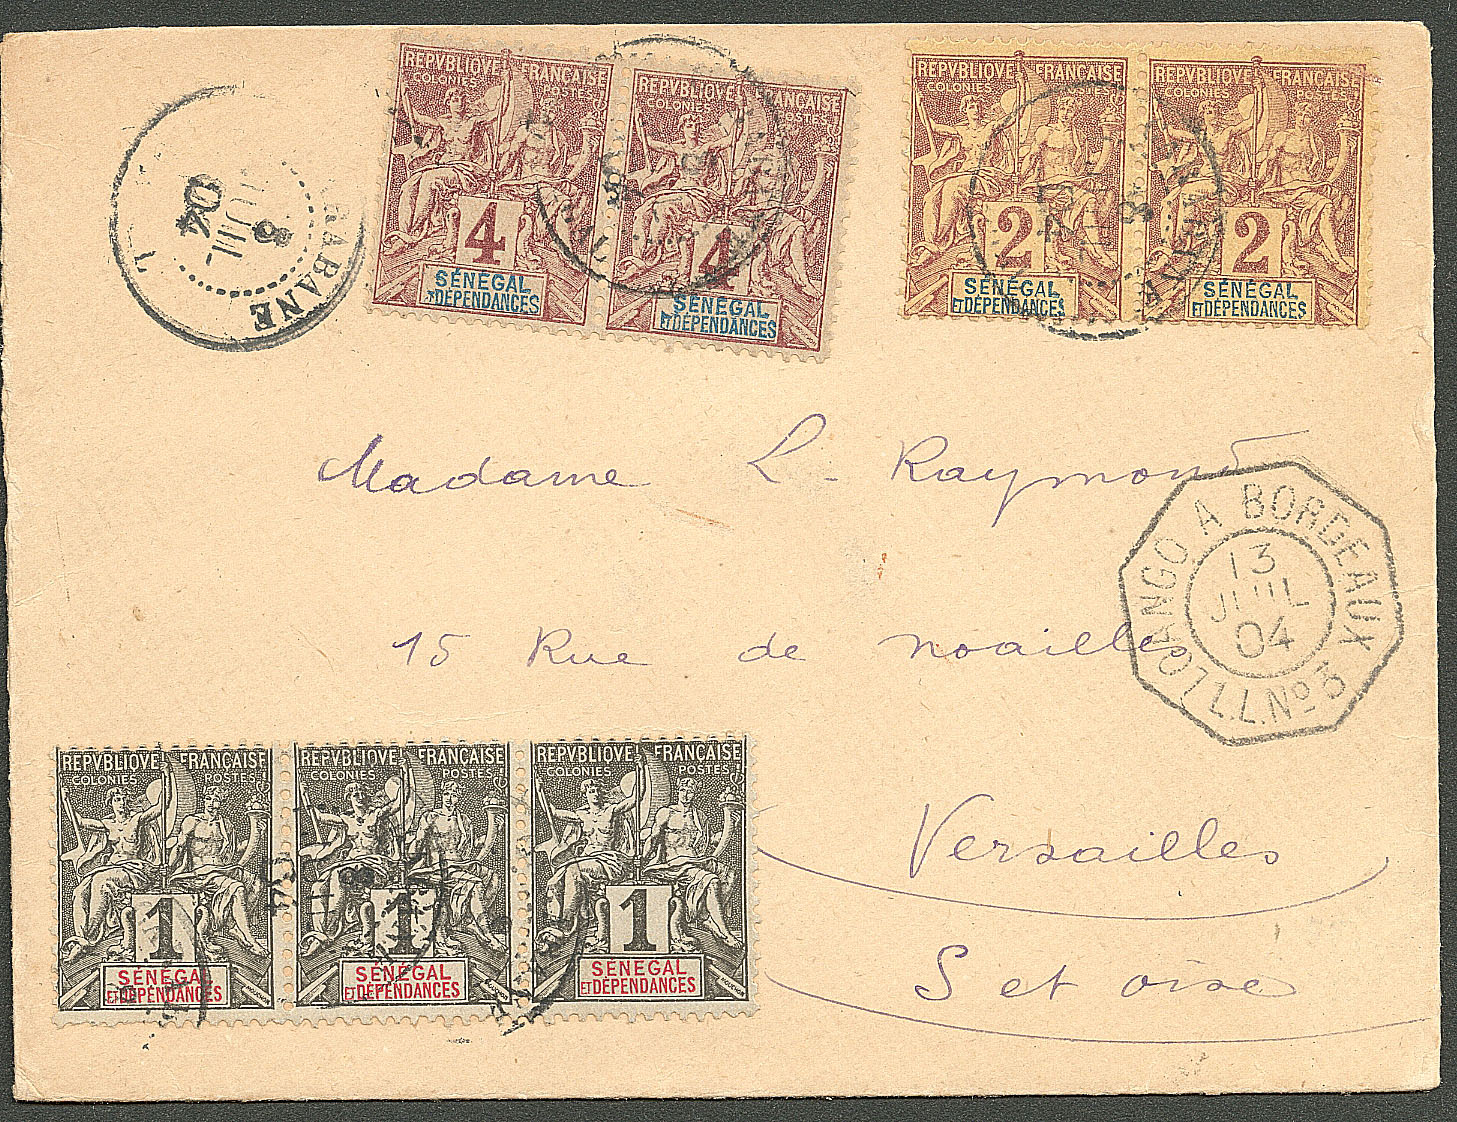 REPVBLIQVE FRANÇAISE
COLONIES POSTES
4
SÉNÉGAL
ET DÉPENDANCES
REPVBLIQVE FRANÇAISE
COLONIES POSTES
4
SÉNÉGAL
ET DÉPENDANCES
REPVBLIQVE FRANÇAISE
COLONIES POSTES
2
SÉNÉGAL
ET DÉPENDANCES
REPVBLIQVE FRANÇAISE
COLONIES POSTES
2
SÉNÉGAL
ET DÉPENDANCES
8
JUIL
04
Madame L. Raymond
15 Rue de noailles
Versailles
S et oise
LOANGO A BORDEAUX
13
JUIL
04
L.L.No 3
REPVBLIQVE FRANÇAISE
COLONIES POSTES
1
SÉNÉGAL
ET DÉPENDANCES
REPVBLIQVE FRANÇAISE
COLONIES POSTES
1
SÉNÉGAL
ET DÉPENDANCES
REPVBLIQVE FRANÇAISE
COLONIES POSTES
1
SÉNÉGAL
ET DÉPENDANCES